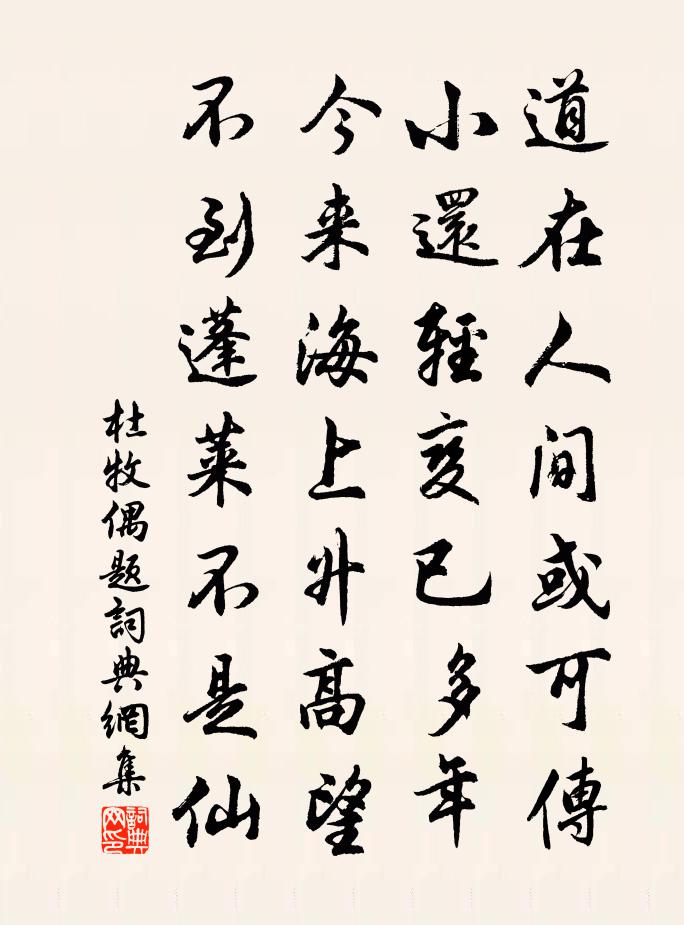 道在人間或可傳
小還輕變已多年
今来海上升高望
不到蓬萊不是仙
杜牧偶题詞典網集
詞典網印